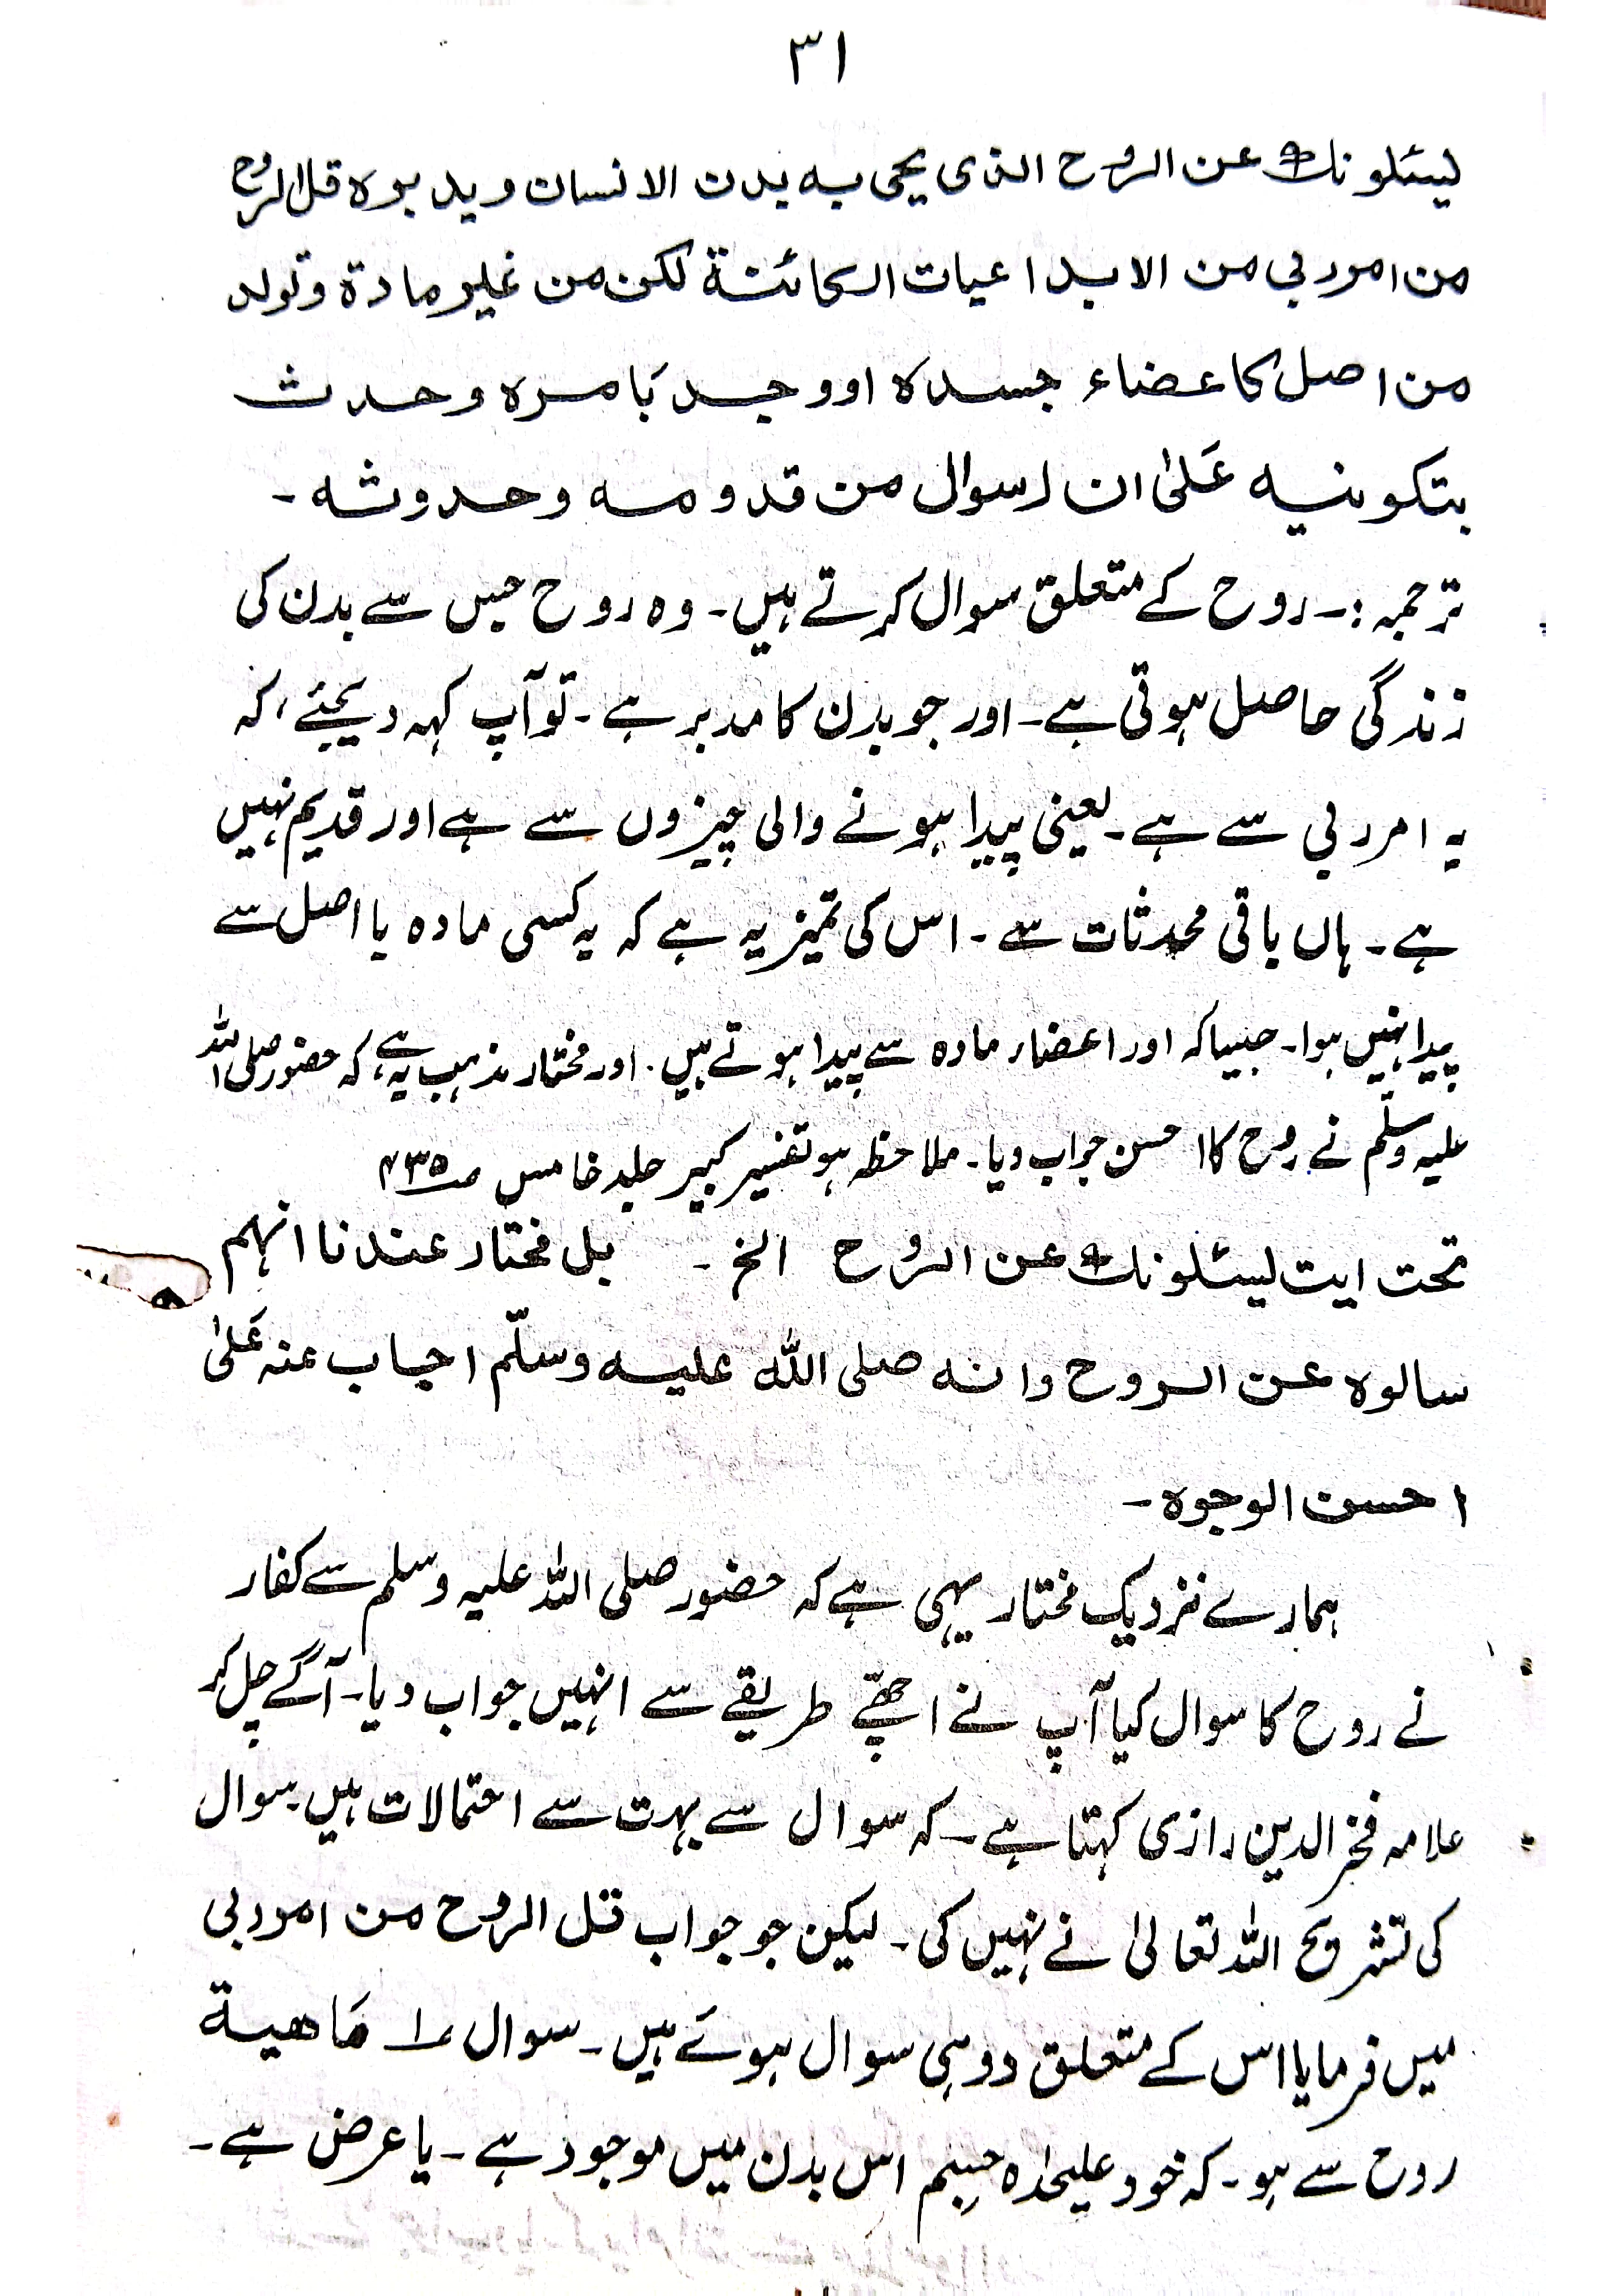 ۳۱
لیسئلونك عن الروح الذی یحی به بدن الانسان ویدبره قل الروح
من امر ربی من الابداعیات الکائنة لکن من غیر مادة وتولد
من اصل کاعضاء جسده اووجد بامره وحدث
بتکوینیه عَلیٰ ان اسوال من قدومه وحدوثه -
ترجمہ :۔ روح کے متعلق سوال کرتے ہیں۔ وہ روح جس سے بدن کی
زندگی حاصل ہوتی ہے۔ اور جو بدن کا مدبر ہے ۔ تو آپ کہہ دیجئے، کہ
یہ امر ربی سے ہے۔ یعنی پیدا ہونے والی چیزوں سے ہے اور قدیم نہیں
ہے ۔ ہاں باقی محدثات سے ۔ اس کی تمیز یہ ہے کہ یہ کسی مادہ یا اصل سے
پیدا نہیں ہوا۔ جیسا کہ اور اعضاء مادہ سے پیدا ہوتے ہیں ۔ اور مختار مذہب یہ ہے، کہ حضور صلی اللہ
علیہ وسلّم نے روح کا احسن جواب دیا۔ ملاحظہ ہو تفسیر کبیر جلد خامس صہ ۴۳۵
تحت ایت لیسئلونك عن الرُوح الخ - بل مختار عندنا انہم
سالوہ عن الروح وانه صلی اللہ علیه وسلّم اجاب عنه عَلیٰ
احسن الوجوہ -
ہمارے نزدیک مختار یہی ہے کہ حضور صلی اللہ علیہ وسلم سے کفار
نے روح کا سوال کیا آپ نے اچھّے طریقے سے انہیں جواب دیا۔ آگے چل کر
علامہ فخر الدین رازی کہتا ہے ۔ کہ سوال سے بہت سے احتمالات ہیں۔ سوال
کی تشریح اللہ تعالیٰ نے نہیں کی ۔ لیکن جو جواب قل الروح من امر ربی
میں فرمایا اس کے متعلق دو ہی سوال ہوئے ہیں ۔ سوال ۱ مَاهية
روح سے ہو ۔ کہ خود علیحدہ جسم اس بدن میں موجود ہے ۔ یا عرض ہے ۔